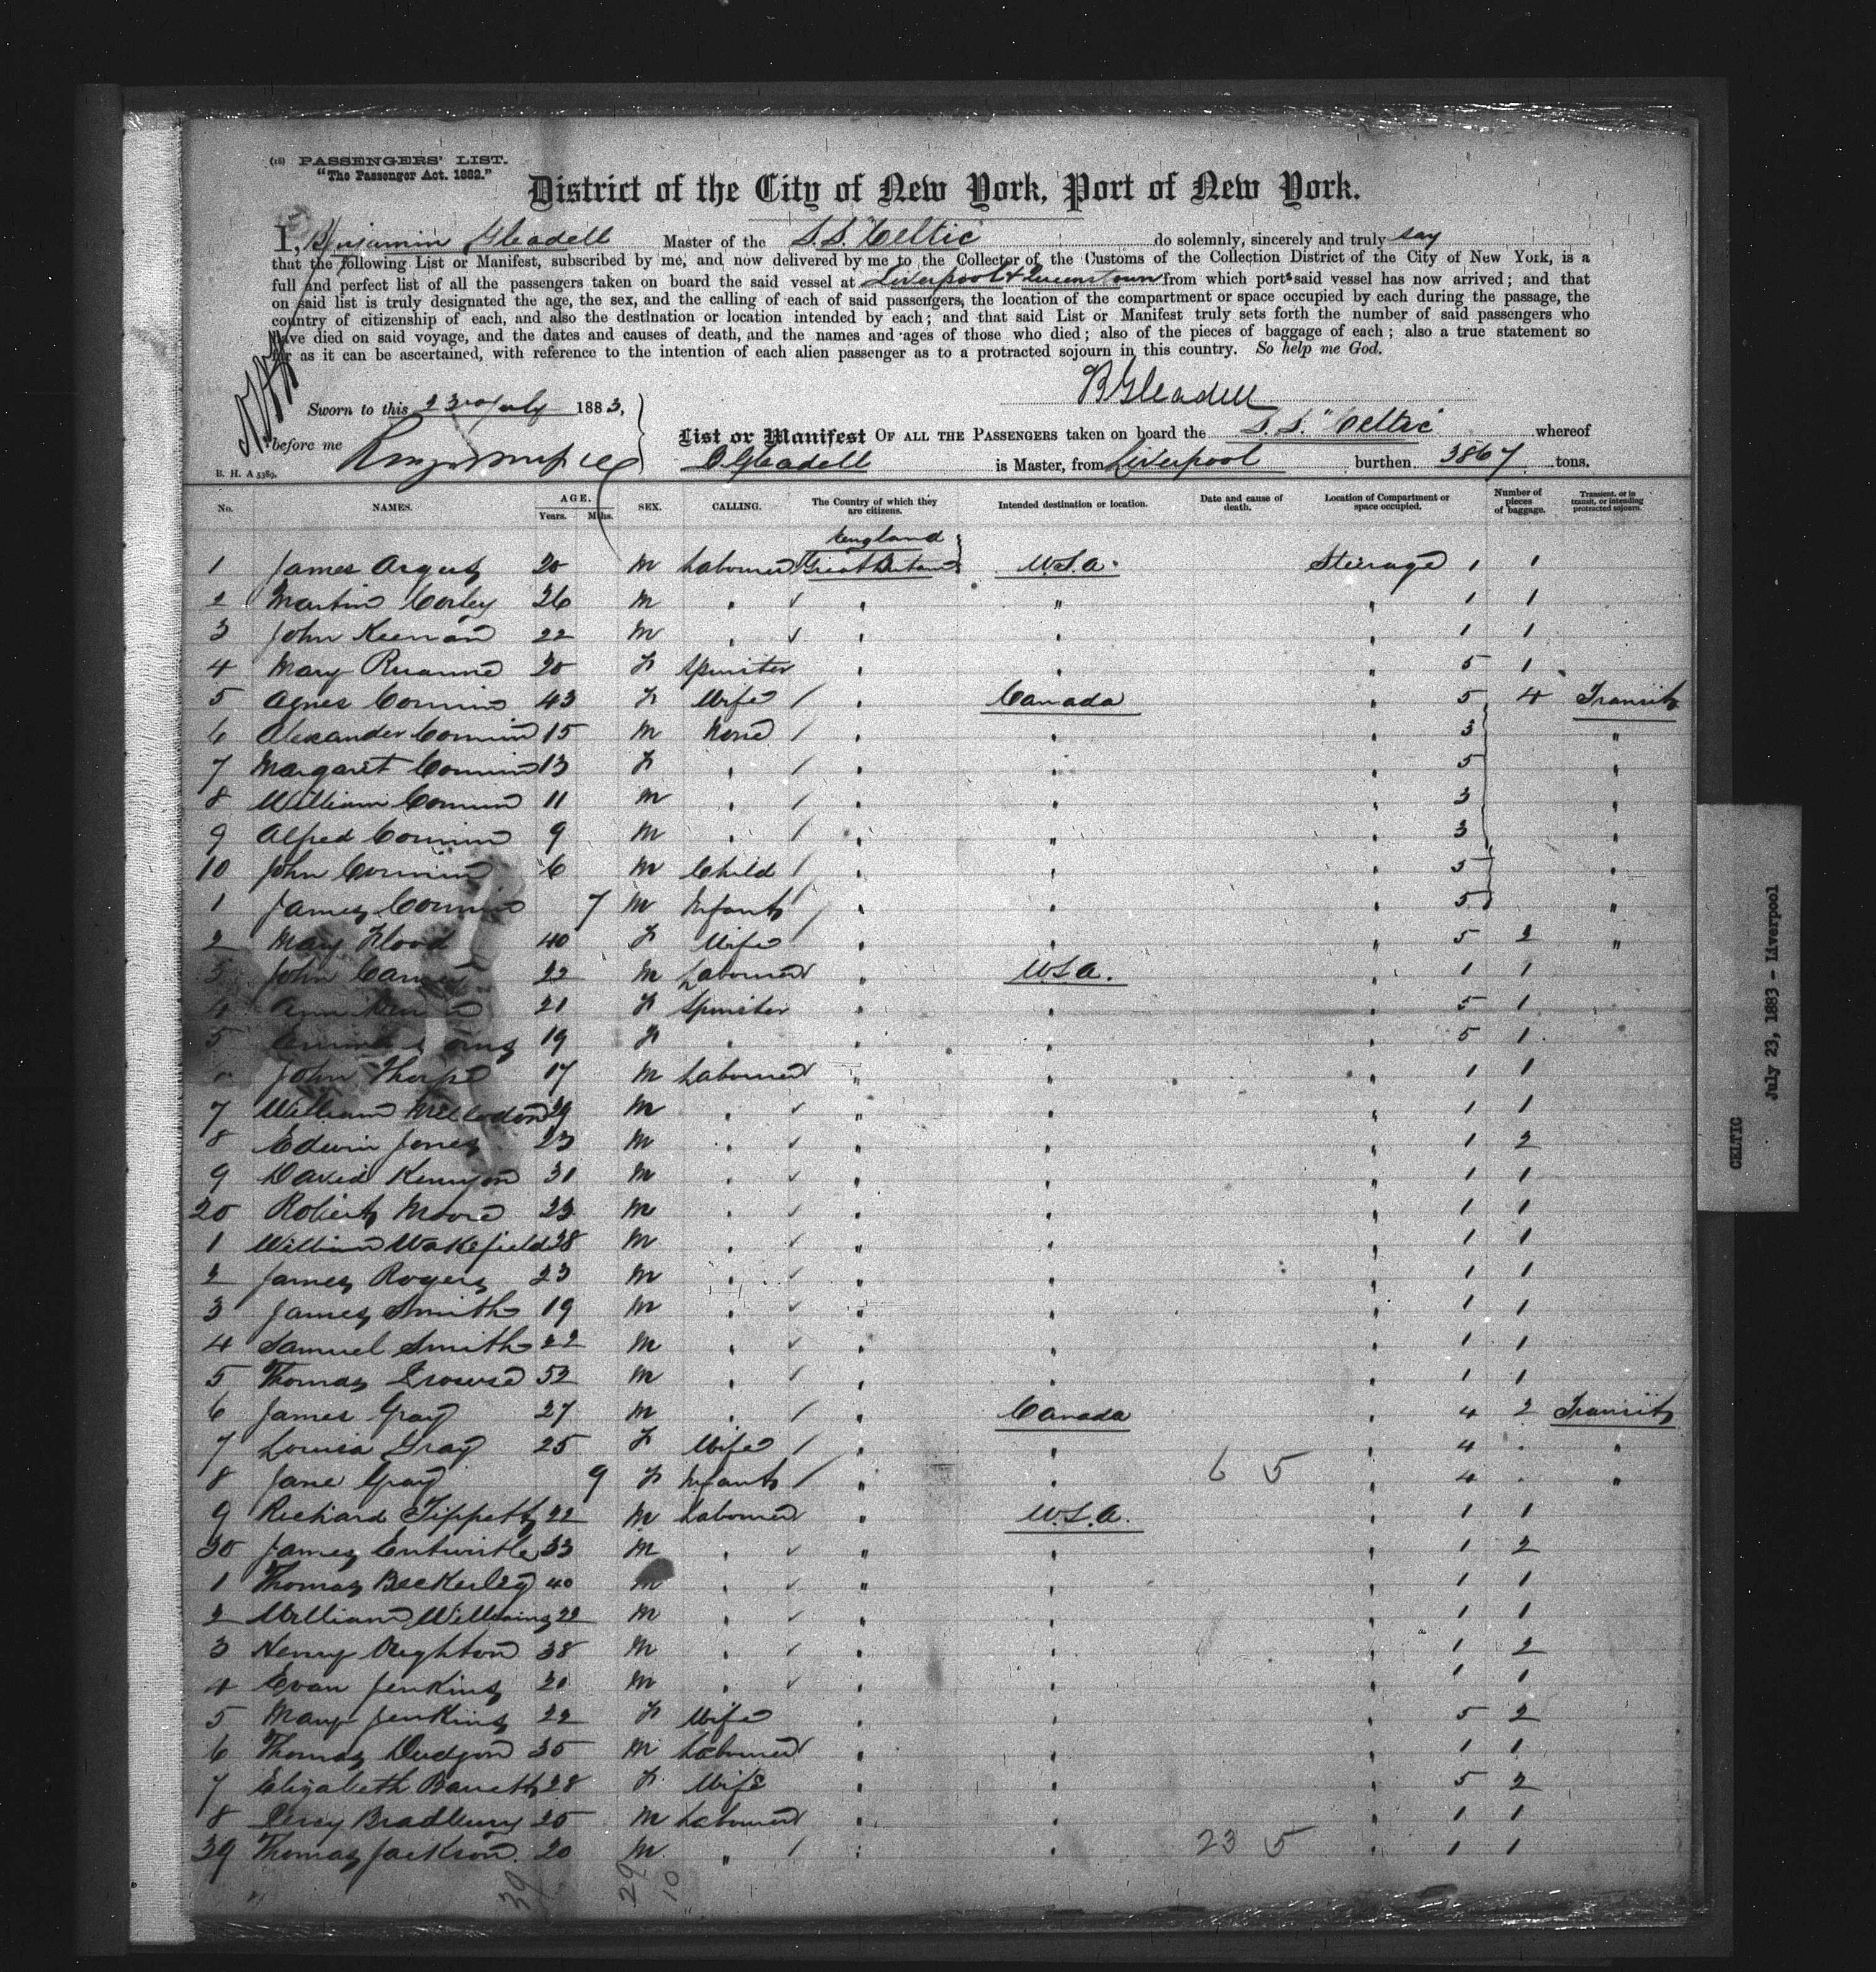 (18) PASSENGERS' LIST.
"The Passenger Act. 1882."
District of the City of New York, Port of New York.
I, Benjamin Gleadell Master of the S.S. "Celtic" do solemnly, sincerely and truly say
that the following List or Manifest, subscribed by me, and now delivered by me to the Collector of the Customs of the Collection District of the City of New York, is a
full and perfect list of all the passengers taken on board the said vessel at Liverpool & Queenstown from which ports said vessel has now arrived; and that
on said list is truly designated the age, the sex, and the calling of each of said passengers, the location of the compartment or space occupied by each during the passage, the
country of citizenship of each, and also the destination or location intended by each; and that said List or Manifest truly sets forth the number of said passengers who
have died on said voyage, and the dates and causes of death, and the names and ages of those who died; also of the pieces of baggage of each; also a true statement so
far as it can be ascertained, with reference to the intention of each alien passenger as to a protracted sojourn in this country. So help me God.
B Gleadell
Sworn to this 23rd July 1883,
before me
List or Manifest OF ALL THE PASSENGERS taken on board the S.S. "Celtic" whereof
B Gleadell is Master, from Liverpool burthen 3867 tons.
B. H. A 5389.
No. NAMES. AGE. Years. Mths. SEX. CALLING. The Country of which they are citizens. Intended destination or location. Date and cause of death. Location of Compartment or space occupied. Number of pieces of baggage. Transient, or in transit, or intending protracted sojourn.
England
1 James Argus 20 M Labourer Great Britain U.S.A. Steerage 1 1
2 Martin Corley 26 M " " " " 1 1
3 John Keenan 22 M " " " " 1 1
4 Mary 20 F Spinster " " " 5 1
5 Agnes Commin 43 F Wife " Canada " 5 4 Transit
6 Alexander Commin 15 M None " " " 3 "
7 Margaret Commin 13 F " " " " 5 "
8 William Commin 11 M " " " " 3 "
9 Alfred Commin 9 M " " " " 3 "
10 John Commin 6 M Child " " " 5 "
1 James Commin 7 M Infant " " " 5 "
2 Mary Flood 40 F Wife " " " 5 2 "
3 John 22 M Labourer " U.S.A. " 1 1
4 Ann 21 F Spinster " " " 5 1
5 19 F " " " " 5 1
John Thorpe 17 M Labourer " " " 1 1
7 William 29 M " " " " 1 1
8 Edwin Jones 23 M " " " " 1 2
9 David Kenyon 31 M " " " " 1 1
20 Robert Moore 23 M " " " " 1 1
1 William Wakefield 28 M " " " " 1 1
2 James Rogers 23 M " " " " 1 1
3 James Smith 19 M " " " " 1 1
4 Samuel Smith 22 M " " " " 1 1
5 Thomas 52 M " " " " 1 1
6 James Gray 27 M " " Canada " 4 2 Transit
7 Louisa Gray 25 F Wife " " " 4 " "
8 Jane Gray 9 F Infant " " 6 5 " 4 " "
9 Richard Tippett 22 M Labourer " U.S.A. " 1 1
30 James Entwistle 33 M " " " " 1 2
1 Thomas Beckerleg 40 M " " " " 1 1
2 William Williams 22 M " " " " 1 1
3 Henry Deighton 38 M " " " " 1 2
4 Evan Jenkins 21 M " " " " 1 1
5 Mary Jenkins 22 F Wife " " " 5 2
6 Thomas Dudgeon 35 M Labourer " " " 1 1
7 Elizabeth Barrett 28 F Wife " " " 5 2
8 Percy Bradbury 20 M Labourer " " " 1 1
39 Thomas Jackson 20 M " " " 23 5 " 1 1
39 29 10
CELTIC
July 23, 1883 - Liverpool